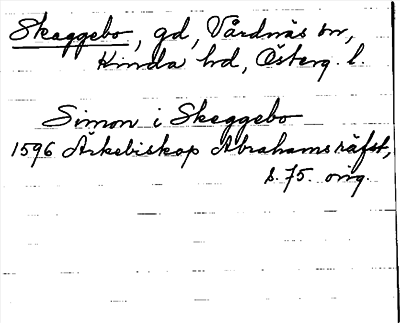 Skeggebo, gd, Vårdnäs sn,
Kinda hd, Österg. l.
Simon i Skeggebo
1596 Ärkebiskop Abrahams räfst,
s. 75. orig.